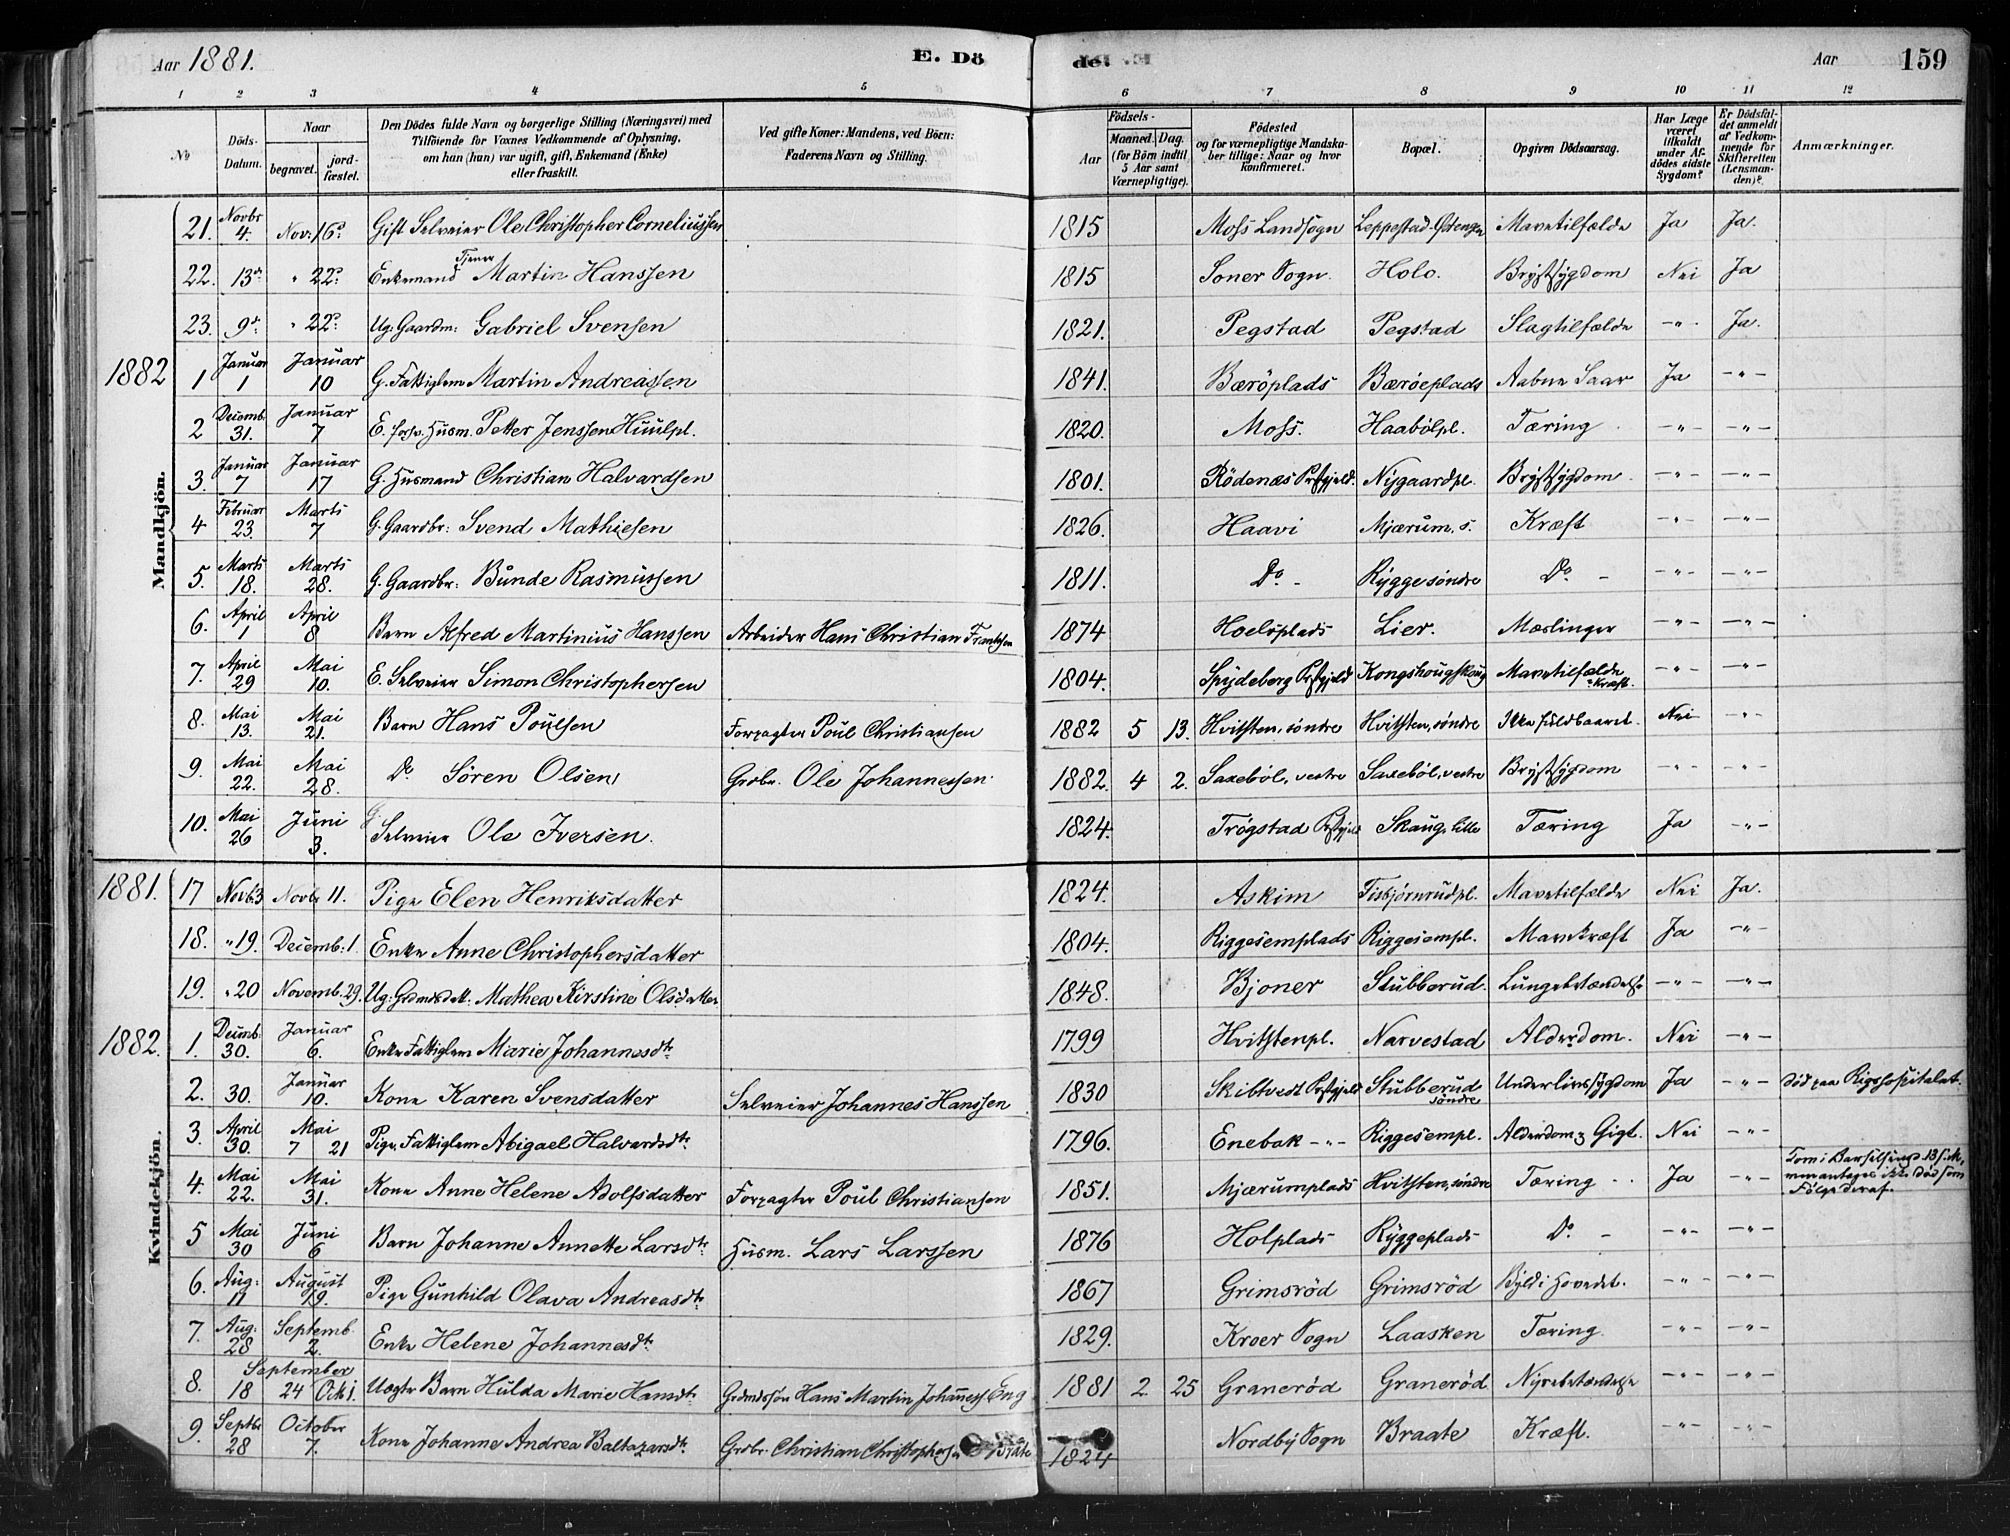 Aar 1881. E. Dö de. Aar 159
1 2 3 4 5 6 7 8 9 10 11 12
No Döds-Datum. Naar begravet. jordfæstet. Den Dödes fulde Navn og borgerlige Stilling (Næringsvei) med Tilföiende for Voxnes Vedkommende af Oplysning, om han (hun) var ugift, gift, Enkemand (Enke) eller fraskilt. Ved gifte Koner: Mandens, ved Börn: Faderens Navn og Stilling. Aar Födsels- Maaned. Dag. (for Börn indtil 5 Aar samt Værnepligtige). Födested og for værnepligtige Mandskaber tillige: Naar og hvor konfirmeret. Bopæl. Opgiven Dödsaarsag. Har Læge været tilkaldt under Afdödes sidste Sygdom? Er Dödsfaldet anmeldt af Vedkommende for Skifteretten (Lensmanden)? Anmærkninger.
Mandkjön.
21. Novbr 4. Nov: 16d Gift Selveier Ole Christopher Corneliussen 1815 Moss Landsogn Leppestad-Østengen Mavetilfælde Ja Ja.
22. 13de " 22d Enkemand Tjener Martin Hanssen 1815 Soner Sogn. Holo. Brystsygdom Nei Ja
23. 9de " 22d Ug. Gaardm: Gabriel Svensen 1821. Pegstad Pegstad Slagtilfælde -"- Ja.
1882 1 Januar 1 Januar 10 G. Fattiglem Martin Andreassen 1841. Bæröplads Bærøeplads Aabne Saar Ja -"-
2 Decemb. 31. Januar 7 E. forh. Husm. Petter Jenssen Huulpl. 1820. Moss. Haabölpl. Tæring -"- -"-
3. Januar 7 Januar 17 G. Husmand Christian Halvardsen 1801. Rödenæs Prstgjeld. Nygaardpl. Brystsygdom -"- -"-
4 Februar 23. Marts 7 G. Gaardbr: Svend Mathiesen 1826. Haavi Mjærum, s. Kræft -"- -"-
5. Marts 18. Marts 28. G. Gaardbr: Bunde Rasmussen 1811. Do - Rygge søndre Do - -"- -"-
6. April 1 April 8 Barn Alfred Martinius Hanssen Arbeider Hans Christian Frantssen 1874 Hoelsplads Lier. Mæslinger -"- -"-
7. April 29 Mai 10. E. Selveier Simon Christophersen 1804. Spydeberg Prstgjeld Kongshougskoug Mavetilfælde "Kræft. -"- -"-
8. Mai 13. Mai 21. Barn Hans Poulsen Forpagter Poul Christiansen 1882 5 13. Hvitsten, søndre Hvitsten, søndre Ikke fuldbaaret. Nei -"-
9. Mai 22. Mai 28. Do Søren Olsen Grdbr. Ole Johannessen. 1882. 4 2. Saxeböl, vestre Saxeböl, vestre Brystsygdom -"- -"-
10. Mai 26 Juni 3. G. Selveier Ole Iversen. 1824. Trögstad Prstgjeld Skaug, lille Tæring Ja -"-
Kvindekjön.
1881. 17 Novb3 Novbr 11. Pige Elen Henriksdatter 1824. Askim Fisbjørnrudpl. Mavetilfælde Nei Ja.
18. "19. Decemb: 1. Enke Anne Christophersdatter 1804. Riggesemplads Riggesempl. Mavekræft Ja -"-
19. "20 Novemb. 29. Ug. Grdmdsdatt: Mathea Kirstine Olsdatter 1848. Bjoner Stubberud. Lungebetændelse -"- -"-
1882. 1. Decemb. 30. Januar 6. Enke Fattiglem Marie Johannesdtr 1799 Hvitstenpl. Narvestad Alderdom. Nei -"-
2. 30. Januar 10. Kone Karen Svensdatter Selveier Johannes Hanssen 1830 Skibtvedt Prstgjeld Stubberud søndre Underlivssygdom Ja -"- død paa Rigshospitalet.
3. April 30. Mai 7 21 Pige, Fattiglem Abigael Halvardsdtr 1796. Enebak -"- Riggesempl. Alderdom & Gigt. Nei -"-
4. Mai 22. Mai 31. Kone Anne Helene Adolfsdatter Forpagter Poul Christiansen 1851. Mjærumplads Hvitsten, søndre Tæring - . Ja -"- Kom i Barselseng d. 13 s. M., men antages ikke død som Følge deraf.
5 Mai 30 Juni 6 Barn Johanne Annette Larsdtr Husm. Lars Larssen 1876 Holplads Ryggeplads Do - -"- -"-
6. Aug. 11 August 19. Pige Gunhild Olava Andreasdtr 1867 Grimsrød Grimsrød Byld i Hovedet. -"- -"-
7. Aug. 28 Septemb. 2. Enke Helene Johannesdtr 1829. Kroer Sogn Laasken Tæring. -"- -"-
8. September 18 24 Oct 1. Uægte Barn Hulda Marie Hansdtr Grdmdssön Hans Martin Johaness. Eng 1881 2 25 Granerød Granerød Nyrebetændelse -"- -"-
9. Septbr 28 October 7. Kone Johanne Andrea Baltazarsdtr Grdbr. Christian Christophersen Bråte 1824 Nordby Sogn Braate Kræft. -"- -"-